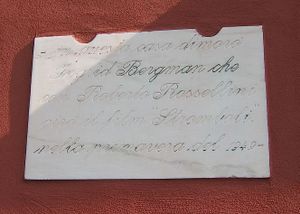 In questa casa dimorò
Ingrid Bergman che
con Roberto Rossellini
girò il film "Stromboli"
nella primavera del 1949-